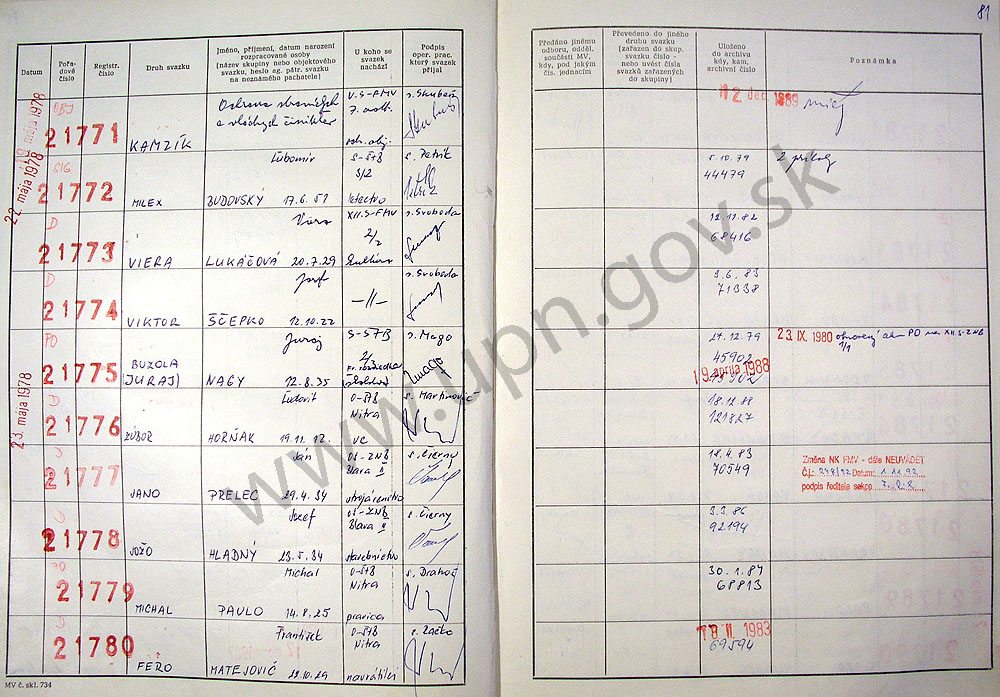 81
Datum
Pořadové číslo
Registr. číslo
Druh svazku
Jméno, příjmení, datum narození
rozpracované osoby
(název skupiny nebo objektového
svazku, heslo ag. pátr. svazku
na neznámého pachatele)
U koho se
svazek
nachází
Podpis
oper. prac.
který svazek
přijal
Předáno jinému
odboru, odděl.
součásti MV,
kdy, pod jakým
čís. jednacím
Převedeno do jiného
druhu svazku
(zařazen do skup.
svazku číslo -
nebo uvést čísla
svazků zařazených
do skupiny)
Uloženo
do archivu
kdy, kam,
archivní číslo
Poznámka
mája 1978
21771
KAMZÍK
Ochrana
V.S-FMV
7. odd.
12 dec. 1989
22. mája 1978
SIG
21772
MILEX
Ľubomír
BUDOVSKÝ 17.6.51
S-ŠtB
3/2
letectvo
s. Petrík
5.10.79
44479
2 prílohy
D
21773
VIERA
Viera
LUKÁČOVÁ 20.7.29
XII.S-FMV
2/2
s. Svoboda
12.11.82
68416
D
21774
VIKTOR
Jozef
ŠČEPKO 12.10.22
-II-
s. Svoboda
3.6.83
71338
23. mája 1978
PO
21775
BUZOLA
(JURAJ)
Juraj
NAGY 12.8.35
S-ŠTB
s. Mago
27.12.79
45902
19 apríla 1988
23. IX. 1980
PO na XII.S-ZNB
21776
ZUBOR
Ľudovít
HORŇÁK 19.11.12.
O-ŠtB
Nitra
s. Martinovič
18.12.88
121827
21777
JANO
Ján
PRELEC 29.4.34
OS-ZNB
Blava II
strojárenstvo
s. Čierny
18.4.83
70549
Změna NK FMV - dále NEUVÁDĚT
Č.j.: 248/92 Datum: 1.11.92
podpis ředitele sekce
21778
JOŽO
Jozef
HLADNÝ 23.5.34
OS-ZNB
Blava II
stavebníctvo
s. Čierny
3.3.86
92194
21779
MICHAL
Michal
PAULO 14.8.25
O-ŠtB
Nitra
pravica
30.1.84
68813
D
21780
FERO
František
MATEJOVIČ
O-ŠtB
Nitra
navrátilci
18 II. 1983
69594
MV č. skl. 734
www.upn.gov.sk